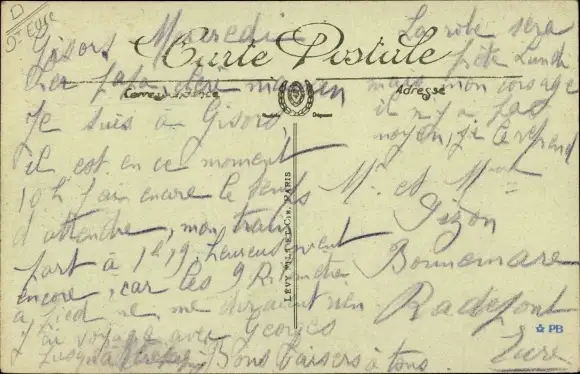 D
Dt Eure
Gisors Mercredi
Carte Postale
Cher papa chéri maman
Correspondance
Je suis à Gisors,
il est en ce moment
10h j'ai encore le temps
d'attendre, mon train
part à 1h19, heureusement
encore, car les 9 Kil
à pied ne me disaient rien
J'ai voyagé avec Georges
jusqu'à
Bons baisers à tous
La robe sera
prête Lundi
mais mon corsage
Adresse
il n'y a pas
moyen, je le
LÉVY FILS ET CIE, PARIS
Mr et Mme
Pizon
Bonnemare
Radepont
Eure
PB